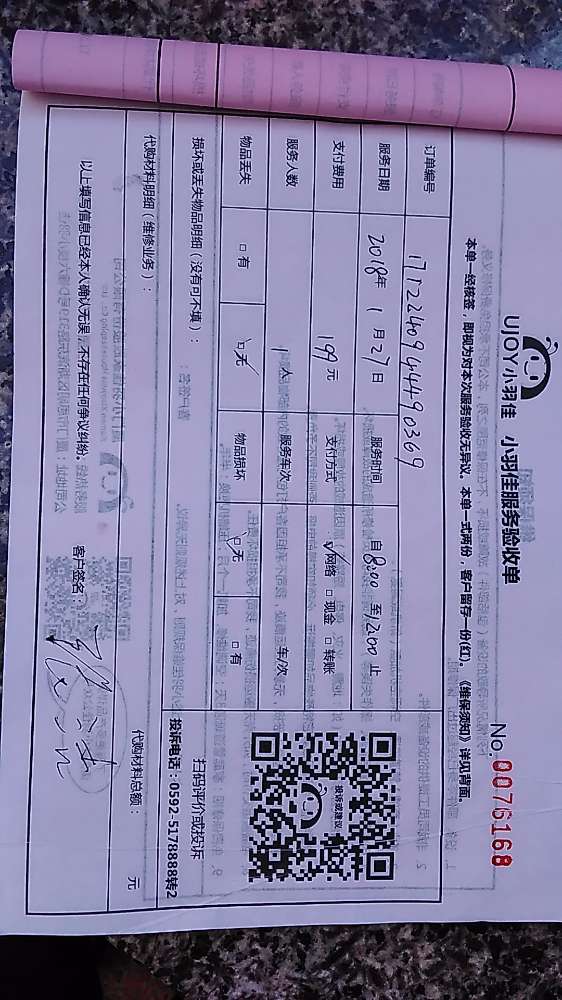 UJOY小羽佳 小羽佳服务验收单
No. 0076168
本单一经核签，即视为对本次服务验收无异议。本单一式两份，客户留存一份(红)。《维保须知》详见背面。
订单编号 1712240944490369
服务日期 2018年1月27日 服务时间 自8:00至12:00止
支付费用 199元 支付方式 网络 现金 转账
服务人数 人 服务车次 车/次
物品丢失 有 无 物品损坏 无 有
损坏或丢失物品明细（没有可不填）：
投诉或建议
扫码评价或投诉
投诉电话：0592-5178888转2
代购材料明细（维修业务）：
代购材料总额： 元
以上填写信息已经本人确认无误，不存在任何争议纠纷。 客户签名：